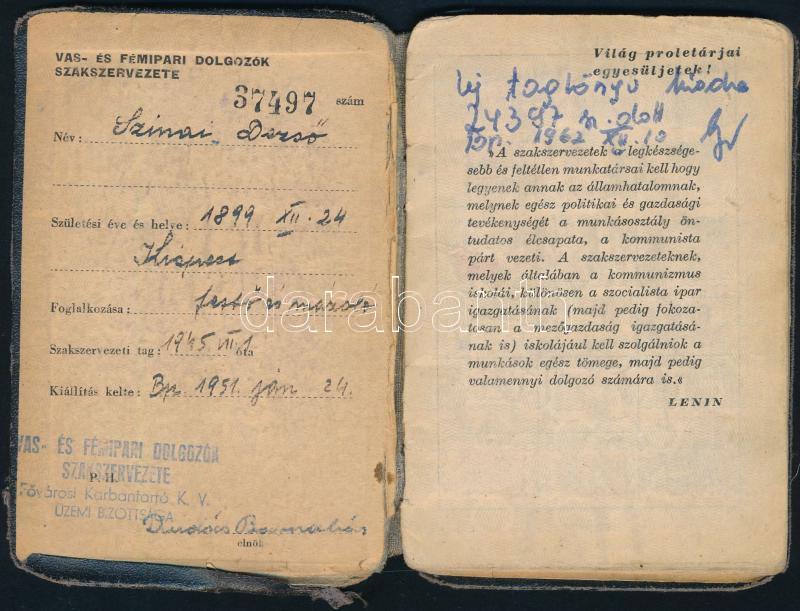 VAS- ÉS FÉMIPARI DOLGOZÓK
SZAKSZERVEZETE
37497 szám
Név: Szinai Dezső
Születési éve és helye: 1899 XII. 24
Kispest
Foglalkozása: festő és mázoló
Szakszervezeti tag: 1945 VII. 1 óta
Kiállítás kelte: Bp. 1951. jan. 24.
VAS- ÉS FÉMIPARI DOLGOZÓK
SZAKSZERVEZETE
P. H.
Fővárosi Karbantartó K. V.
ÜZEMI BIZOTTSÁGA
Dudás Barnabás
elnök
Világ proletárjai
egyesüljetek!
Új tagkönyv kiadva
74397 sz. alatt
Bp. 1962 XII. 10
„A szakszervezetek a legkészsége-
sebb és feltétlen munkatársai kell hogy
legyenek annak az államhatalomnak,
melynek egész politikai és gazdasági
tevékenységét a munkásosztály ön-
tudatos élcsapata, a kommunista
párt vezeti. A szakszervezeteknek,
melyek általában a kommunizmus
iskolái, különösen a szocialista ipar
igazgatásának (majd pedig fokoza-
tosan a mezőgazdaság igazgatásá-
nak is) iskolájául kell szolgálniok a
munkások egész tömege, majd pedig
valamennyi dolgozó számára is.«
LENIN
darabanth.com